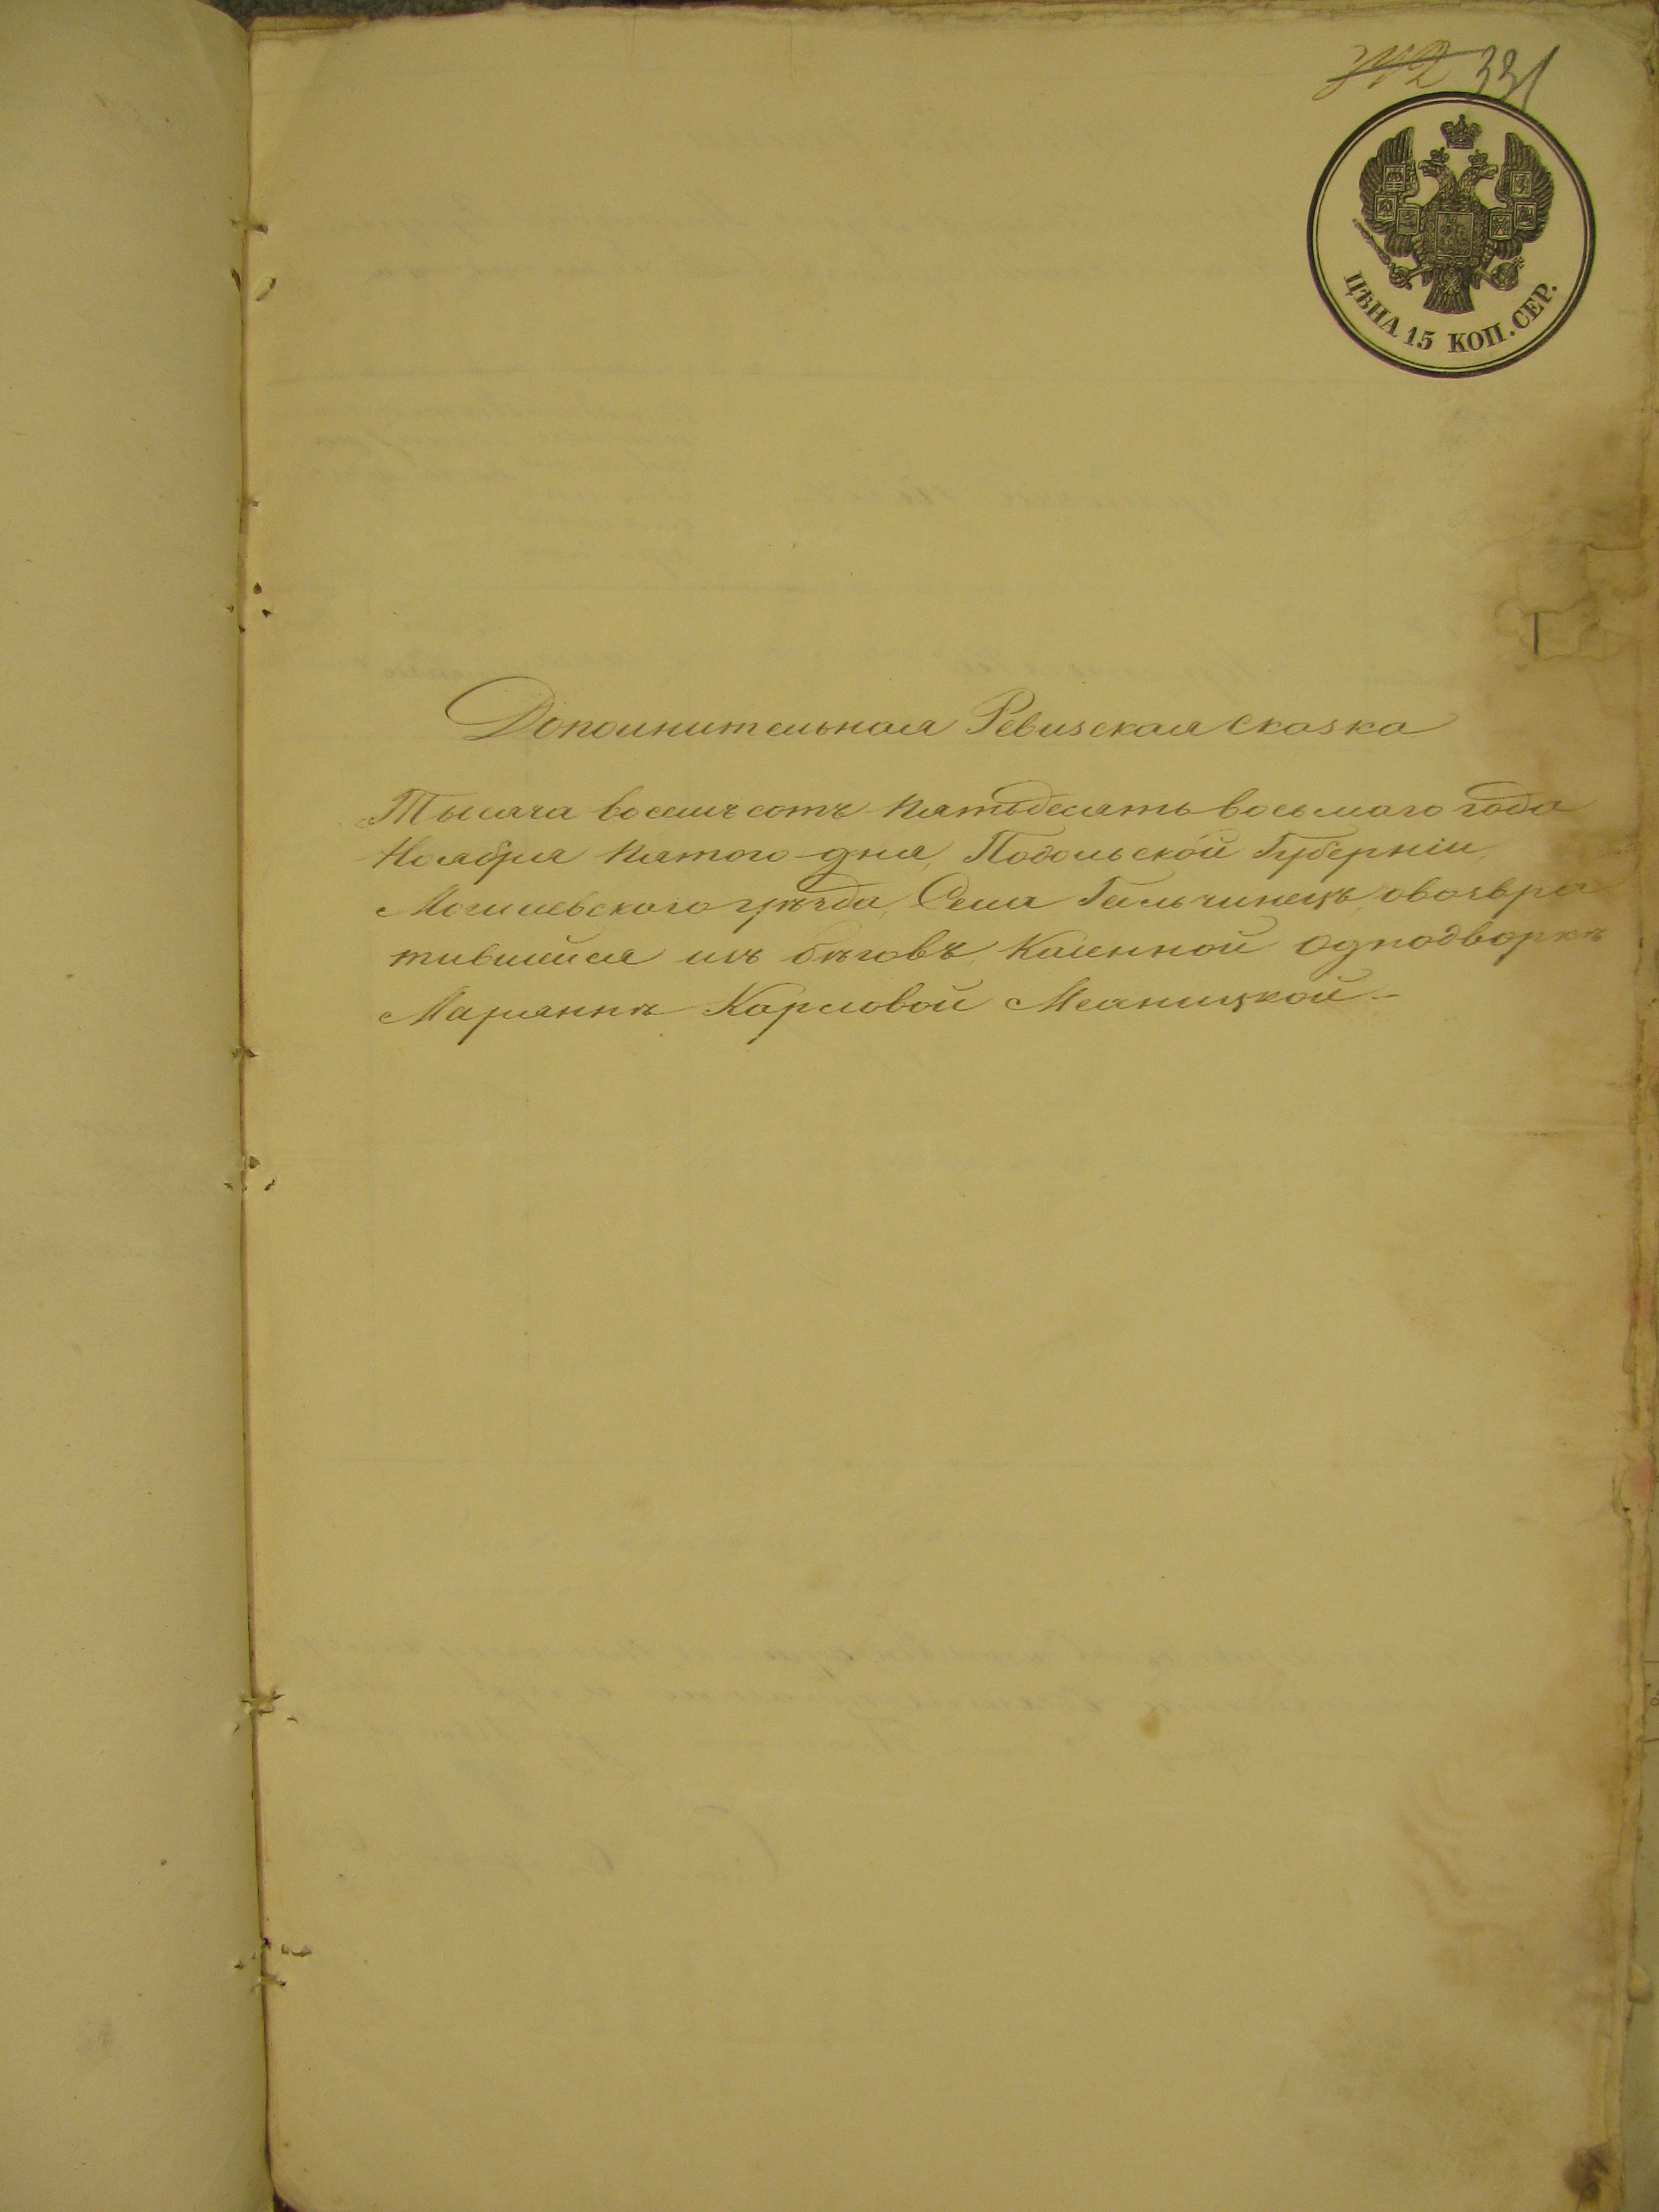 331
ЦѢНА 15 КОП. СЕР.
Дополнительная Ревизская Сказка
Тысяча восемъсотъ пятьдесятъ восьмаго года
Ноября пятого дня, Подольской Губерніи,
Могилевского уѣзда, Села Гальчинецъ, овозвра-
тившейся изъ бѣговъ Казенной однодворкѣ
Маріяннѣ Карловой Мсаницкой